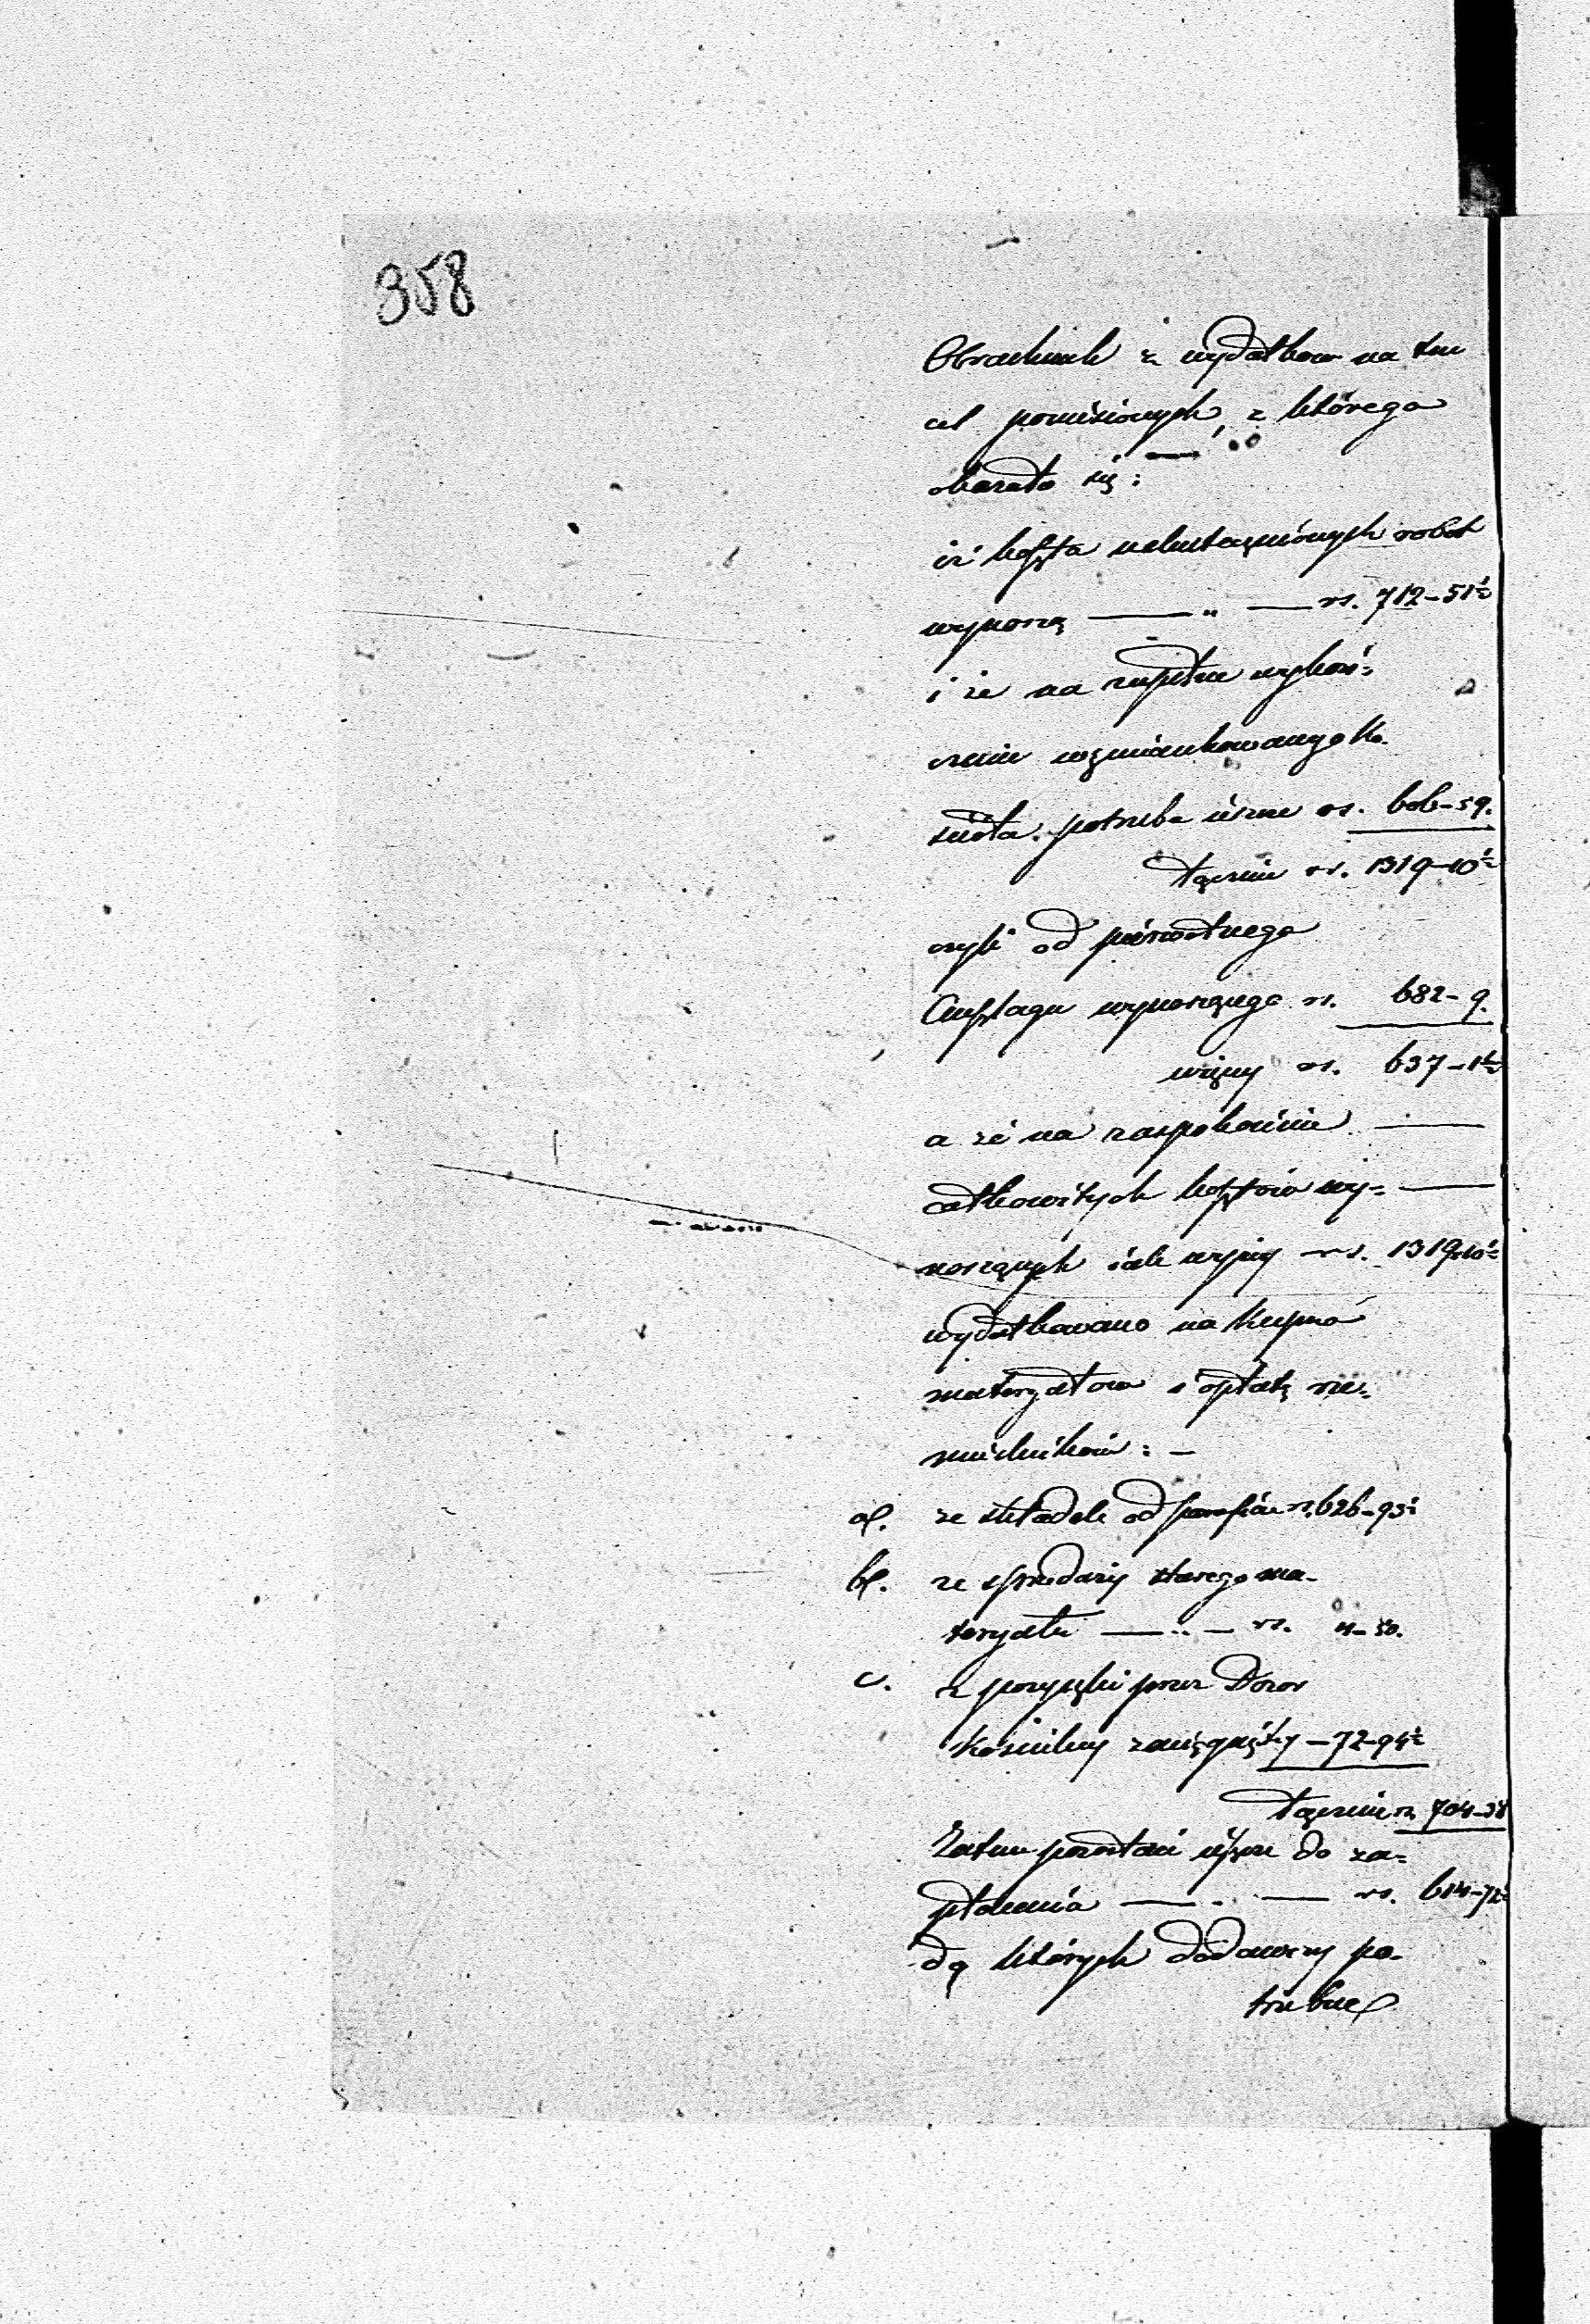 358
Obrachunek z wydatków na ten
cel poniesionych, z którego
okazało się:
iż koszta uskutecznionych robót
wynoszą — " — rs. 712-51½
i że na zupełne wykoń=
czenie wzmiankowanego Ko-
ścioła potrzeba ieszcze rs. 606-59.
łącznie rs. 1319-10½
czyli od pierwotnego
Anszlagu wynoszącego rs. 682-9.
więcey rs. 637-1½
a że na zaspokoienie —
całkowitych kosztów wy= —
noszących iak wyżey rs. 1319-10½
wydatkowano na Kupno
materyałów i opłatę rze=
mieślników: —
a/. ze składek od parafian rs. 626-93½
b/. ze sprzedaży starego ma-
teryału — " — rs. 4-50.
c. z pożyczki przez Dozor
Kościelny zaciągniętey — 72-94½
łącznie rs. 704-38
Zatem pozostaie ieszcze do za=
płacenia — " — rs. 614-72½
do których dodawszy po-
trzebne